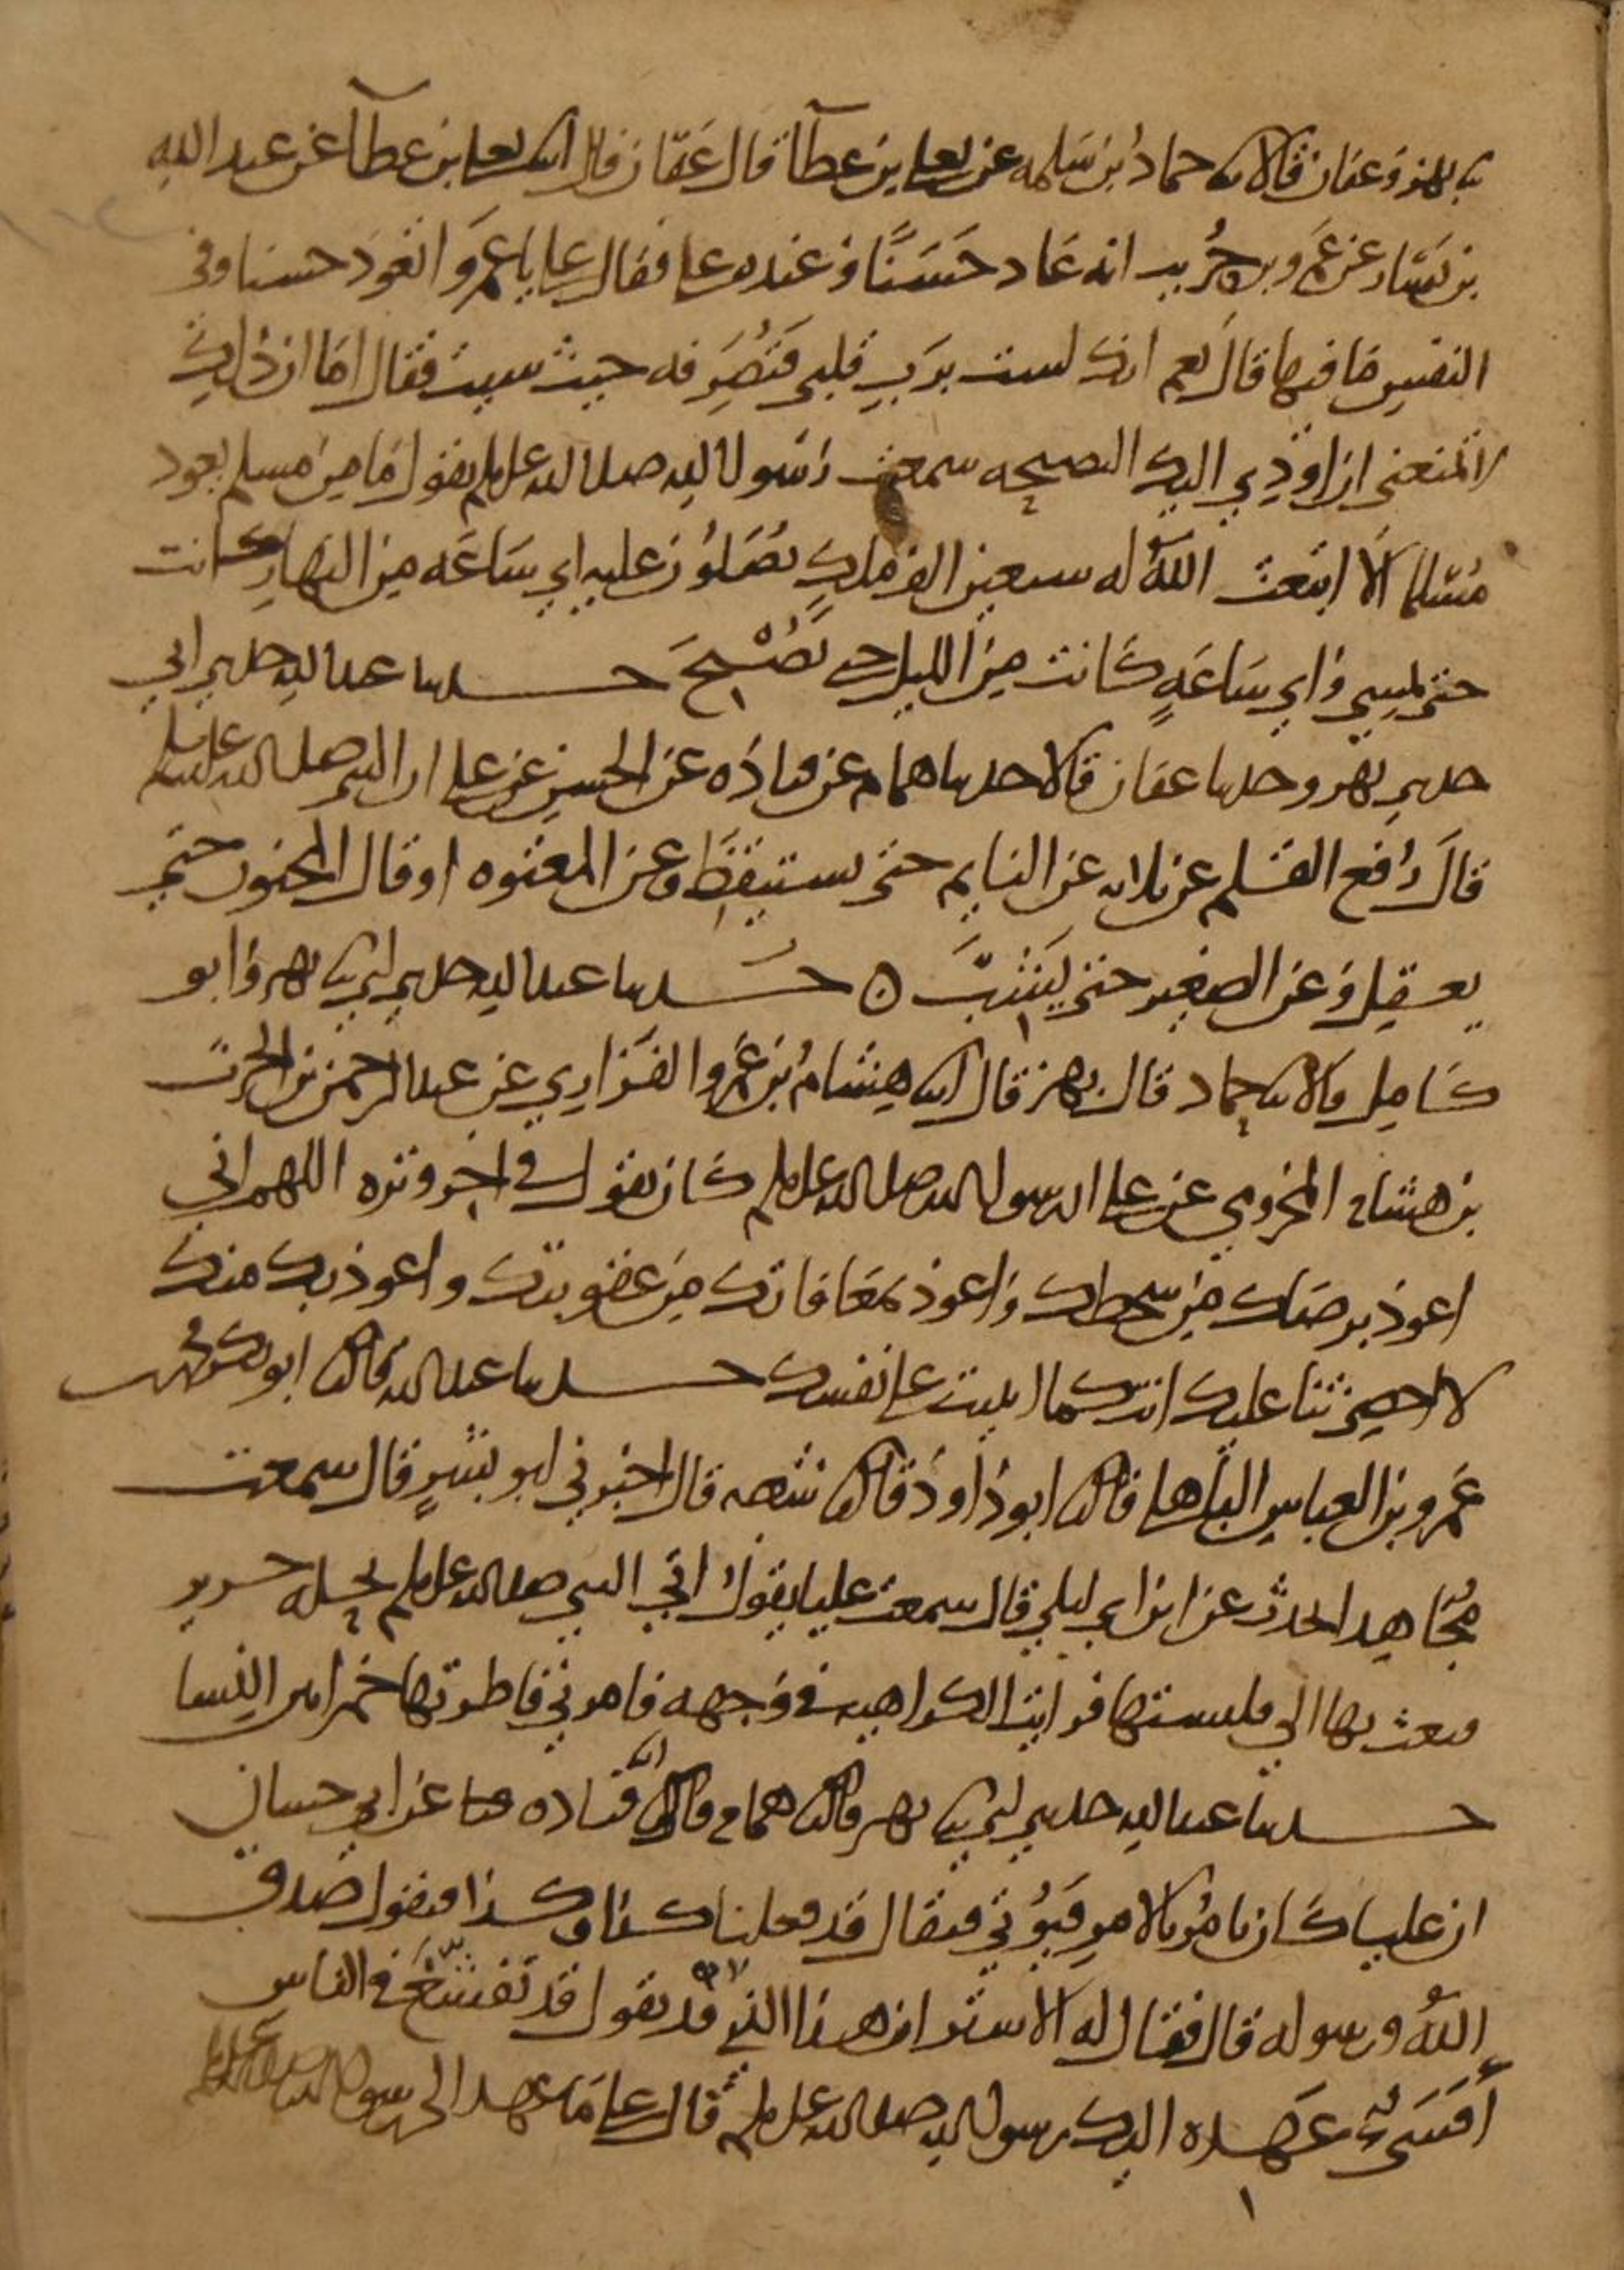 نا بهز وعفان قالا نا حماد بن سلمه عن يعلى بن عطآ قال عفان قال انا يعلى بن عطآ عن عبد الله
بن يسار عن عمرو بن حريب انه عاد حسنا وعنده على فقال على يا عمرو اتعود حسنا وفي
النفس ما فيها قال نعم انك لست برب قلبي فتصرفه حيث شيت فقال اما ان ذلك
لا يمنعني ان اودي اليك النصيحه سمعت رسول الله صلى الله عليه وسلم يقول ما من مسلم يعود
مسلما الا ابتعث الله له سبعين الف ملك يصلون عليه اي ساعه من النهار كانت
حتى يمسي واي ساعة كانت من الليل حتى يصبح حدثنا عبد الله حدثني ابي
حدثني بهز وحدثنا عفان قالا حدثنا همام عن قتاده عن الحسن عن على ان النبي صلى الله عليه وسلم
قال رفع القلم عن ثلاثه عن النايم حتى يستيقظ وعن المعتوه او قال المجنون حتى
يعقل وعن الصغير حتى يشب ه حدثنا عبد الله حدثني ابي نا بهز وابو
كامل قالا نا حماد قال بهز قال انا هشام بن عمرو الفزاري عن عبد الرحمن بن الحرث
بن هشام المخزومي عن على ان رسول الله صلى الله عليه وسلم كان يقول في اخر وتره اللهم اني
اعوذ برضاك من سخطك واعوذ بمعافاتك من عقوبتك واعوذ بك منك
لا احصي ثنا عليك انت كما اثنيت على نفسك حدثنا عبد الله قال نا ابو بكر محمد
عمرو بن العباس الباهلي قال نا ابو داود قال نا شعبه قال اخبرني ابو بشر قال سمعت
مجاهدا يحدث عن ابن ابي ليلى قال سمعت عليا يقول اتي النبي صلى الله عليه وسلم بحله حرير
فبعث بها الي فلبستها فرايت الكراهيه في وجهه فامرني فاطرتها خمرا بين النسا
حدثنا عبد الله حدثني ابي نا بهز قال نا همام قال انا قتاده عن ابي حسان
ان عليا كان يامر بالامر فيوتى فيقال قد فعلنا كذا وكذا فيقول صدق
الله ورسوله قال فقال له الاشتر ان هذا الذي قد تقول قد تفشغ في الناس
أفشى عهده اليك رسول الله صلى الله عليه وسلم قال على ما عهد الي رسول الله صلى الله عليه وسلم